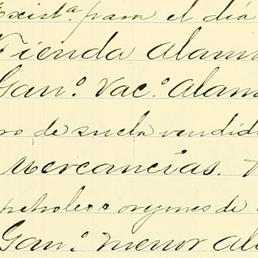 Exist.ª para el día
Tienda Alam
Gan.º Vac.º Alam
ro de suela vendid
Mercancías.
petroleo o
Gan.º menor Al